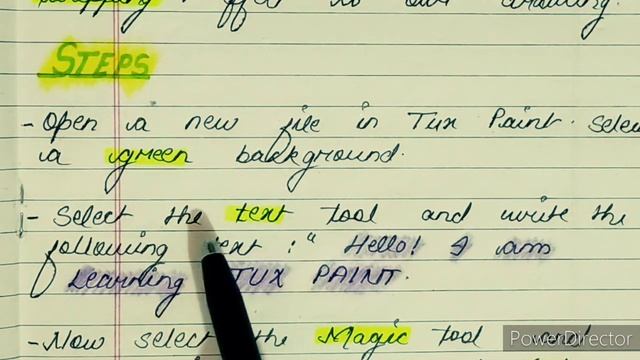 effect to our drawing.
STEPS
- Open a new file in Tux Paint. Select
a green background.
- Select the text tool and write the
following text : " Hello! I am
Learning TUX PAINT.
- Now select the Magic tool and
PowerDirector